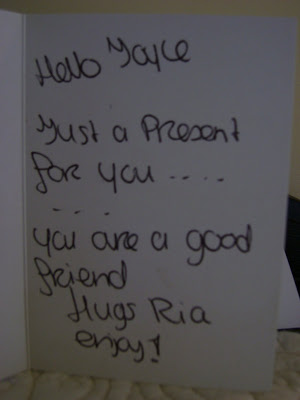 Hello Joyce
Just a Present
for you ....
....
you are a good
friend
Hugs Ria
enjoy!